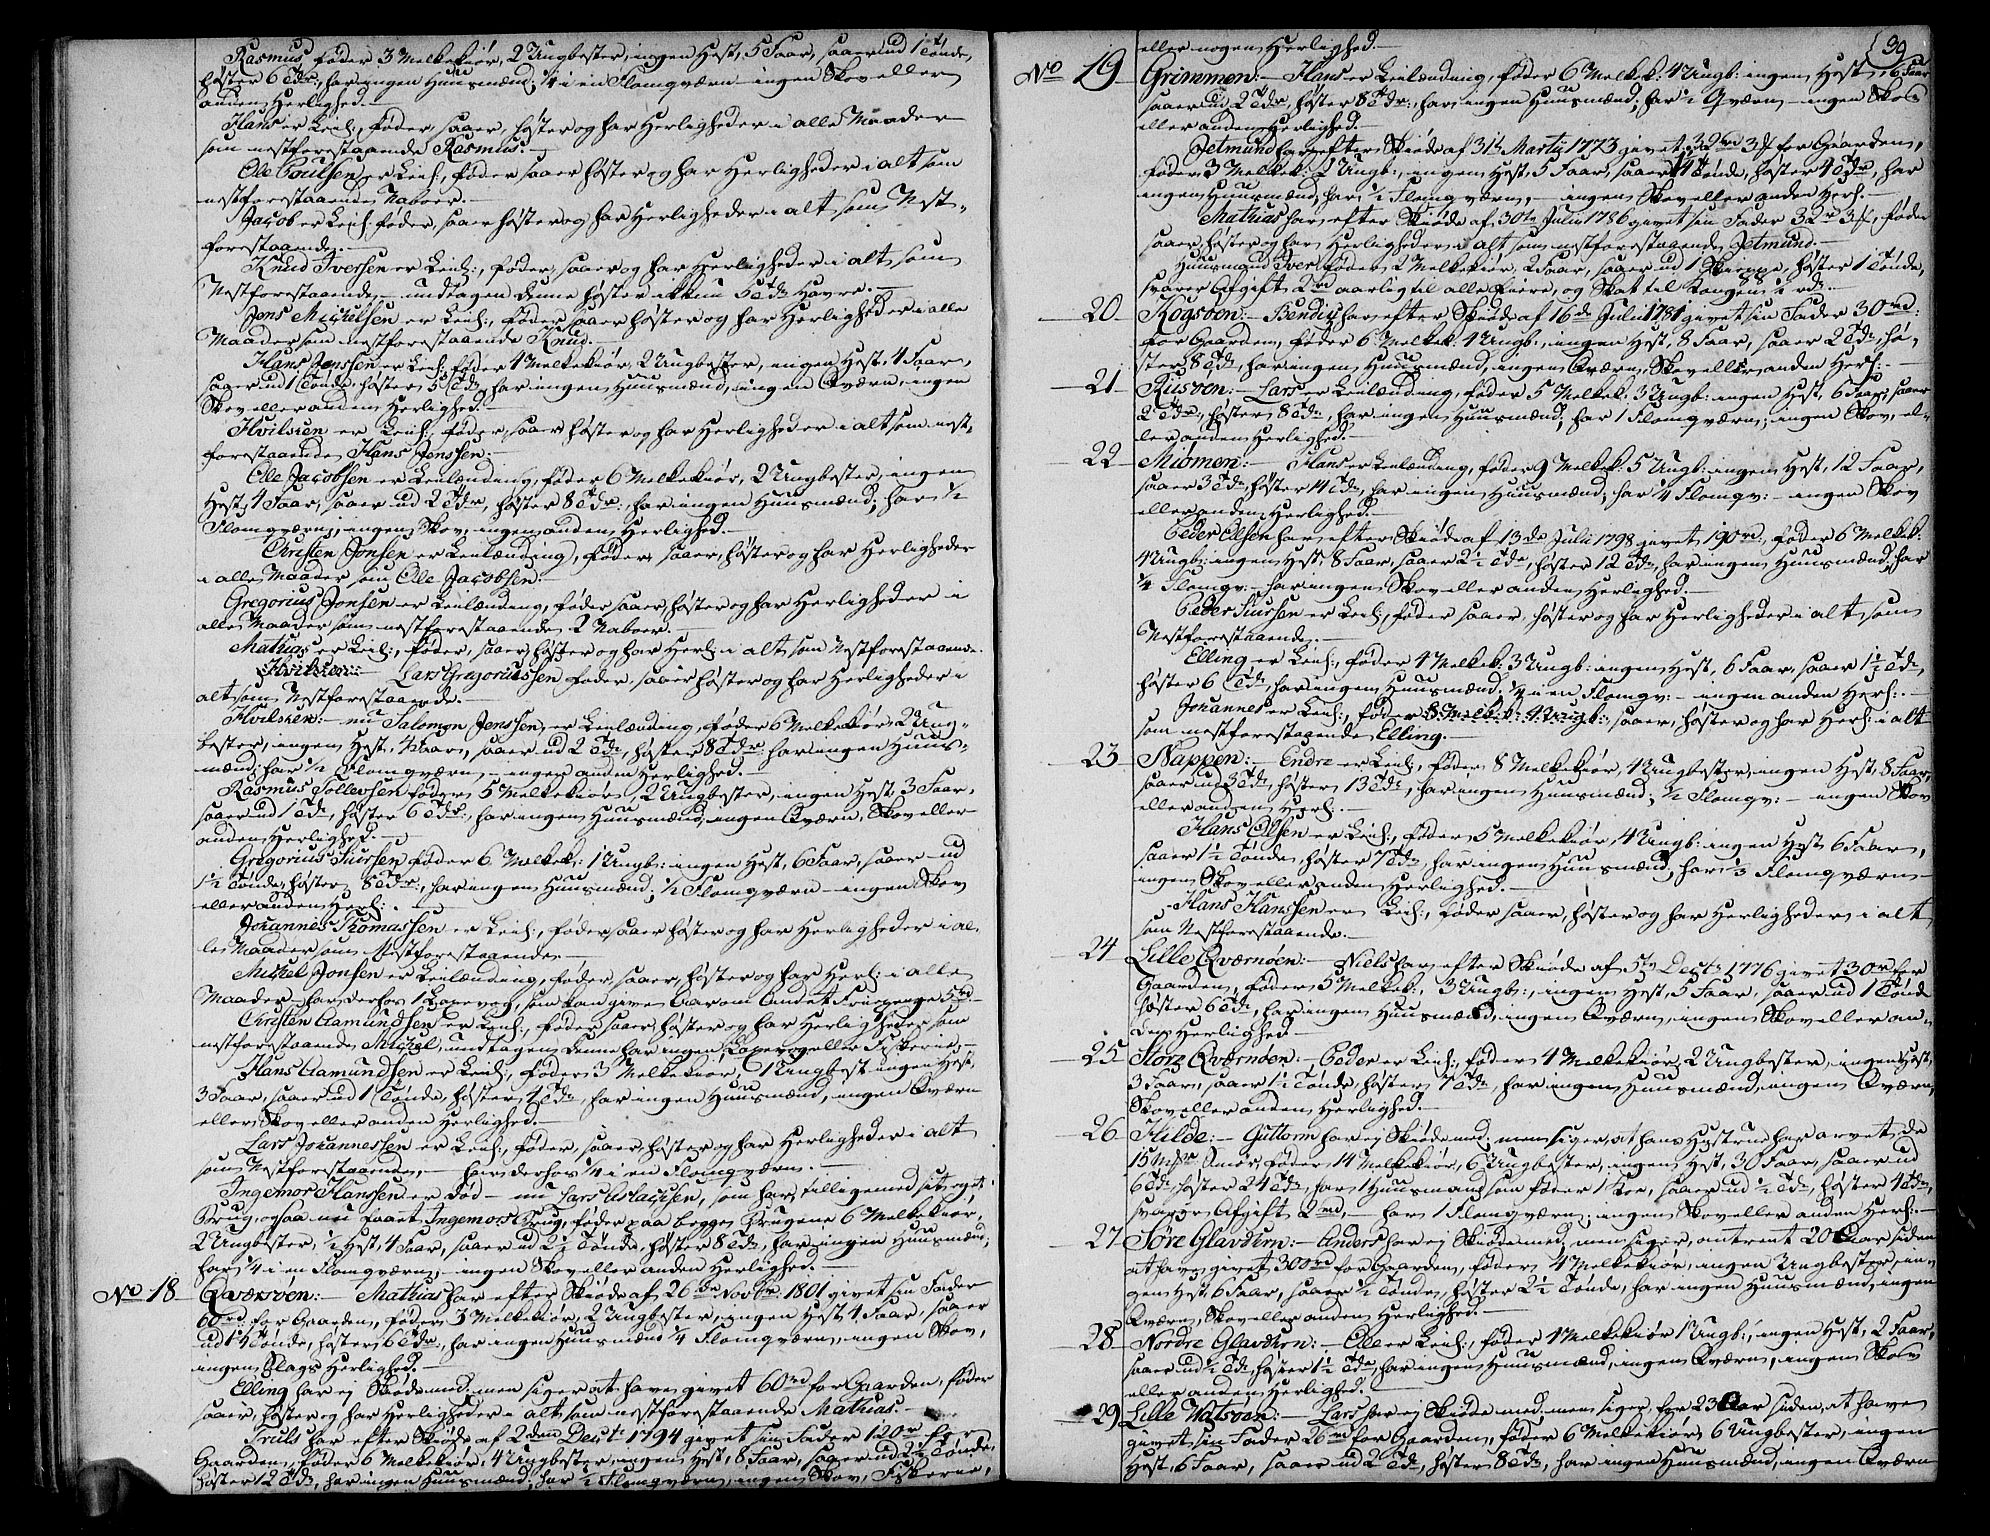 Rasmus føder 3 Melkekiör, 2 Ungbester, ingen Hest, 5 Faar, saaer ud 1 Tönde,
höster 6 Tdr:, har ingen Huusmænd; 1/4 i en Flomqværn ingen Skov eller
anden Herlighed.—
Hans er Leil:, föder, saaer, höster og har Herligheder i alle Maader
som nestforestaaende Rasmus.—
Ole Poulsen er Leil:, föder saaer höster og har Herligheder i alt som
nestforestaaende Naboer.—
Jacob er Leil: föder, saaer höster og har Herligheder i alt som Nest-
forestaaende.—
Knud Iversen er Leil:, föder, saaer og har Herligheder i alt som
Nestforestaaende — undtagen denne höster ikkun 5 Tdr Havre.—
Jens Michelsen er Leil:, föder saaer höster og har Herligheder i alle
Maader som nestforestaaende Knud.—
Hans Jenssen er Leil: föder 4 Melkekiör, 2 Ungbester, ingen Hest, 4 Faar,
saaer ud 1 Tönde, höster 5 Tdr, har ingen Huusmænd, ingen Qværn, ingen
Skov eller anden Herlighed.—
Hvilsten er Leil: föder, saaer höster og har Herligheder i alt som nest-
forestaaende Hans Jenssen.—
Ole Jacobsen er Leilænding, föder 6 Melkekiör, 2 Ungbester, ingen
Hest, 4 Faar, saaer ud 2 Tdr, höster 8 Tdr:, har ingen Huusmænd; har 1/2
Flomqværn; ingen Skov, ingen anden Herlighed.—
Christen Jonsen er Leilænding, föder saaer, höster og har Herligheder
i alle Maader som Ole Jacobsen.—
Gregorius Jonsen er Leilænding, föder saaer, höster og har Herligheder i
alle Maader som nestforestaaende 2 Naboer.—
Mathias er Leil:, föder, saaer, höster og har Herl: i alt som Nestforestaaende.
Lars Gregoriussen föder, saaer höster og har Herligheder i
alt som Nestforestaaende.—
nu Salomon Jenssen, er Leilænding, föder 6 Melkekiör, 2 Ung-
bester, ingen Hest, Faar, saaer ud 2 Tdr, höster 8 Tdr: har ingen Huus-
mænd; har 1/2 Flomqværn — ingen anden Herlighed.—
Rasmus Tollevsen föder 5 Melkekiör, 2 Ungbester, ingen Hest, 3 Faar,
saaer ud 1 Tdr, höster 6 Tdr:, har ingen Huusmænd, ingen Qværn, Skov eller
anden Herlighed.—
Gregorius Siursen föder 6 Melkek: 1 Ungb: ingen Hest, 6 Faar, saaer ud
1½ Tönde, höster 8 Tdr:, har ingen Huusmænd; 1/2 Flomqværn — ingen Skov
eller anden Herl:.—
Johannes Thomassen er Leil:, föder saaer höster og har Herligheder i al-
le Maader som Nestforestaaende.—
Michel Jonsen er Leilænding, föder, saaer, höster og har Herl: i alle
Maader — har derhos 1 Laxevog, som kan give Aar om Andet Friepenge 5 rd—
Christen Aamundsen er Leil:, föder saaer, höster og har Herligheder som
nestforestaaende Michel, undtagen denne har ingen Laxevog eller Fiskerie.—
Hans Aamundsen er Leil:, föder 3 Melkekiör, 1 Ungbest ingen Hest,
3 Faar, saaer ud 1 Tönde, höster 4 Tdr, har ingen Huusmænd, ingen Qværn
eller Skov eller anden Herlighed.—
Lars Johannessen er Leil:, föder, saaer, höster og har Herligheder i alt
som Nestforestaaende,— har derhos 1/4 i en Flomqværn.—
Ingemor Hanssen er Död — nu Lars Aslachsen, som har, tilligemed sit eget
Brug, ogsaa nu faaet Ingemors Brug, föder paa begge Brugene 6 Melkekiör,
2 Ungbester, 1/2 Hest, 4 Faar, saaer ud 2½ Tönde, höster 8 Tdr, har ingen Huusmænd,
har 1/4 i en Flomqværn; ingen Skov eller anden Herlighed.—
No 18 Qværöen:— Mathias har efter Sköde af 26de Novbr: 1801 givet sin Fader
60 rd for Gaarden, föder 3 Melkekiör, 2 Ungbester, ingen Hest 4 Faar, saaer
ud 1½ Tönde, höster 6 Tdr, har ingen Huusmænd 1/4 Flomqværn, ingen Skov,
ingen Slags Herlighed.—
Elling har ej Sköde med, men siger at have givet 60 rd for Gaarden, föder
saaer, höster og har Herligheder i alt som nestforestaaende Mathias.—
Truls har efter Sköde af 2den Decbr 1794 givet sin Fader 120 r for
Gaarden, föder 6 Melkekiör, 4 Ungbester, ingen Hest, 8 Faar, saaer ud 2½ Tönde
höster 12 Tdr, har ingen Huusmænd; har 1/2 Flomqværn, ingen Skov, Fiskerie,
39
eller nogen Herlighed.—
No 19 Grimmen:— Hans er Leilænding, föder 6 Melkek: 4 Ungb: ingen Hest, 6 Faar
saaer ud 2 Tdr, höster 8 Tdr:, har ingen Huusmænd; har 1/2 Qværn — ingen Skov
eller anden Herlighed.—
Jetmund har efter Skiöde af 31te Marty 1773 givet 396 for Gaarden,
föder 3 Melkek: 2 Ungb:, ingen Hest, 5 Faar, saaer 1 Tönde, höster 4 Tdr, har
ingen Huusmænd, har 1/2 Flomqværn, — ingen Skov eller anden Herl:—
Mathias har efter Skiöde af 30te Julii 1786 givet sin Fader 32 r, föder
saaer, höster og har Herligheder i alt som nestforestaaende Jetmund.—
Huusmand Iver, föder 2 Melkekiör, 2 Faar, saaer ud 1 Skieppe, höster 1 Tönde,
svarer Afgift 2 rd aarlig til alle Eiere, og Skat til Kongen 1/2 rd.—
20 Kogsöen:— Bendix har efter Skiöde af 16de Julii 1781 givet sin Fader 30 rd:
for Gaarden, föder 6 Melkek: 4 Ungb:, ingen Hest, 8 Faar, saaer 2 Tdr, hö-
ster 8 Tdr, har ingen Huusmænd, ingen Qværn, Skov eller anden Herl:—
21 Riisöen:— Lars er Leilænding, föder 5 Melkek: 3 Ungb: ingen Hest, 6 Faar, saaer
2 Tdr, höster 8 Tdr, har ingen Huusmænd; har 1 Flomqværn; ingen Skov, el-
ler anden Herlighed.—
22 Miömen:— Hans er Leilænding, föder 9 Melkek: 5 Ungb: ingen Hest, 12 Faar,
saaer 3 Tdr, höster 14 Tdr, har ingen Huusmænd; har 1/4 Flomqv:— ingen Skov
eller anden Herlighed.—
Peder Olsen har efter Skiöde af 13de Julii 1798 givet 190 rd, föder 6 Melkek:
4 Ungb: ingen Hest, 8 Faar, saaer 2½ Tdr, höster 12 Tdr, har ingen Huusmænd; har
1/4 Flomqv:— har ingen Skov eller anden Herlighed.—
Peder Siursen er Leil:, föder saaer, höster og har Herligheder i alt som
Nestforestaaende.—
Elling er Leil:, föder 4 Melkek: 3 Ungb: ingen Hest, 6 Faar, saaer 1½ Tdr,
höster 6 Tdr, har ingen Huusmænd, 1/4 i en Flomqv:— ingen anden Herl:—
Johannes er Leil:, föder 8 Melkek: 4 Ungb:, saaer, höster og har Herl: i alt
som nestforestaaende Elling.—
23 Nappen:— Endre er Leil:, föder 8 Melkekiör, 4 Ungbester, ingen Hest, 8 Faar,
saaer ud 3 Tdr, höster 13 Tdr, har ingen Huusmænd; 1/2 Flomqv:— ingen Skov
eller anden Herl:—
Hans Olsen er Leil:, föder 5 Melkekiör, 4 Ungb: ingen Hest 6 Faar,
saaer 1½ Tönde, höster 7 Tdr, har ingen Huusmænd, har 1/3 Flomqværn—
ingen Skov eller anden Herlighed.—
Hans Hanssen er Leil:, föder saaer, höster og har Herligheder i alt
som Nestforestaaende.—
24 Lille Qværnöen:— Niels har efter Skiöde af 5te Decbr 1776 givet 130 r for
Gaarden, föder 5 Melkek:, 3 Ungb:, ingen Hest, 5 Faar, saaer ud 1 Tönde
höster 6 Tdr, har ingen Huusmænd, ingen Qværn, ingen Skov eller an-
den Herlighed
25 Store Qværnöen:— Peder er Leil:, föder 4 Melkekiör, 2 Ungbester, ingen Hest,
3 Faar, saaer 1½ Tönde, höster 7 Tdr, har ingen Huusmænd, ingen Qværn,
Skov eller anden Herlighed.—
26 Hilde:— Guttorm har ej Skiöde med, men siger, at hans Hustrue har arvet de
15 Mrk Smör, föder 14 Melkekiör, 6 Ungbester, ingen Hest, 30 Faar, saaer ud
6 Tdr, höster 24 Tdr, har 1 Huusmand som föder 1 Koe, saaer ud 1/2 Tdr, höster 4 Tdr,
svarer Afgift 2 rd,— har 1 Flomqværn; ingen Skov eller anden Herl:—
27 Söre Glavdern:— Anders har ej Skiöde med, men siger, omtrent 20 Aar siden
at have givet 300 rd for Gaarden, föder 4 Melkekiör, ingen Ungbester, in-
gen Hest, 6 Faar, saaer 1/2 Tönde, höster 2½ Tönde, har ingen Huusmænd, ingen
Qværn, Skov eller anden Herlighed.—
28 Nordre Glavdern:— Ole er Leil:, föder 4 Melkekiör 1 Ungb:, ingen Hest, 2 Faar,
saaer ud 1/2 Tdr, höster 1½ Tdr, har ingen Huusmænd, ingen Qværn, ingen Skov
eller anden Herlighed.—
29 Lille Vatsöen:— Lars har ej Skiöde med, men siger, for 23 Aar siden, at have
givet sin Fader 26 rd for Gaarden, föder 6 Melkekiör, 6 Ungbester, ingen
Hest, 6 Faar, saaer ud 2 Tdr, höster 8 Tdr, har ingen Huusmænd, ingen Qværn